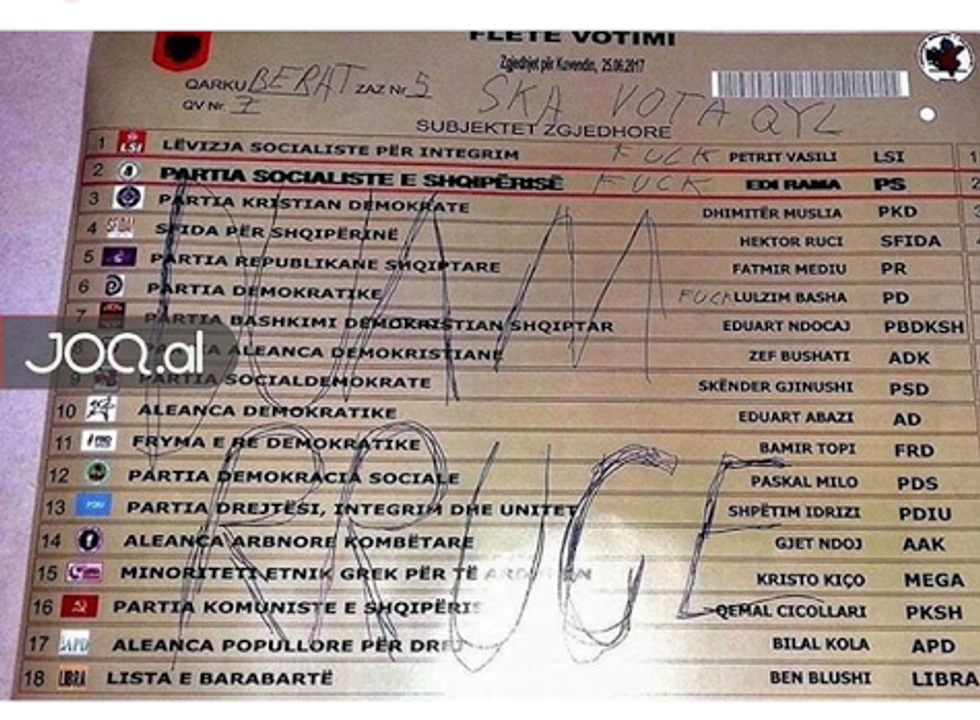 FLETË VOTIMI
Zgjedhjet për Kuvendin, 25.06.2017
QARKU BERAT ZAZ Nr. 5
QV Nr. I
SKA VOTA QYL
SUBJEKTET ZGJEDHORE
1 LSI LËVIZJA SOCIALISTE PËR INTEGRIM FUCK PETRIT VASILI LSI 1
2 PARTIA SOCIALISTE E SHQIPËRISË FUCK EDI RAMA PS 2
3 PARTIA KRISTIAN DEMOKRATE DHIMITËR MUSLIA PKD
4 SFIDA SFIDA PËR SHQIPËRINË HEKTOR RUCI SFIDA
5 PARTIA REPUBLIKANE SHQIPTARE FATMIR MEDIU PR
6 PARTIA DEMOKRATIKE FUCK LULZIM BASHA PD
7 PARTIA BASHKIMI DEMOKRISTIAN SHQIPTAR EDUART NDOCAJ PBDKSH
ALEANCA DEMOKRISTIANE ZEF BUSHATI ADK
9 PARTIA SOCIALDEMOKRATE SKËNDER GJINUSHI PSD
10 ALEANCA DEMOKRATIKE EDUART ABAZI AD
11 FRYMA E RE DEMOKRATIKE BAMIR TOPI FRD
12 PARTIA DEMOKRACIA SOCIALE PASKAL MILO PDS
13 PDIU PARTIA DREJTËSI, INTEGRIM DHE UNITET SHPËTIM IDRIZI PDIU
14 ALEANCA ARBNORE KOMBËTARE GJET NDOJ AAK
15 MINORITETI ETNIK GREK PËR TË KRISTO KIÇO MEGA
16 PARTIA KOMUNISTE E SHQIPËRIS QEMAL CICOLLARI PKSH
17 APD ALEANCA POPULLORE PËR DREJ BILAL KOLA APD
18 LIBRA LISTA E BARABARTË BEN BLUSHI LIBRA
DUAM
RRUGE
JOQ.al